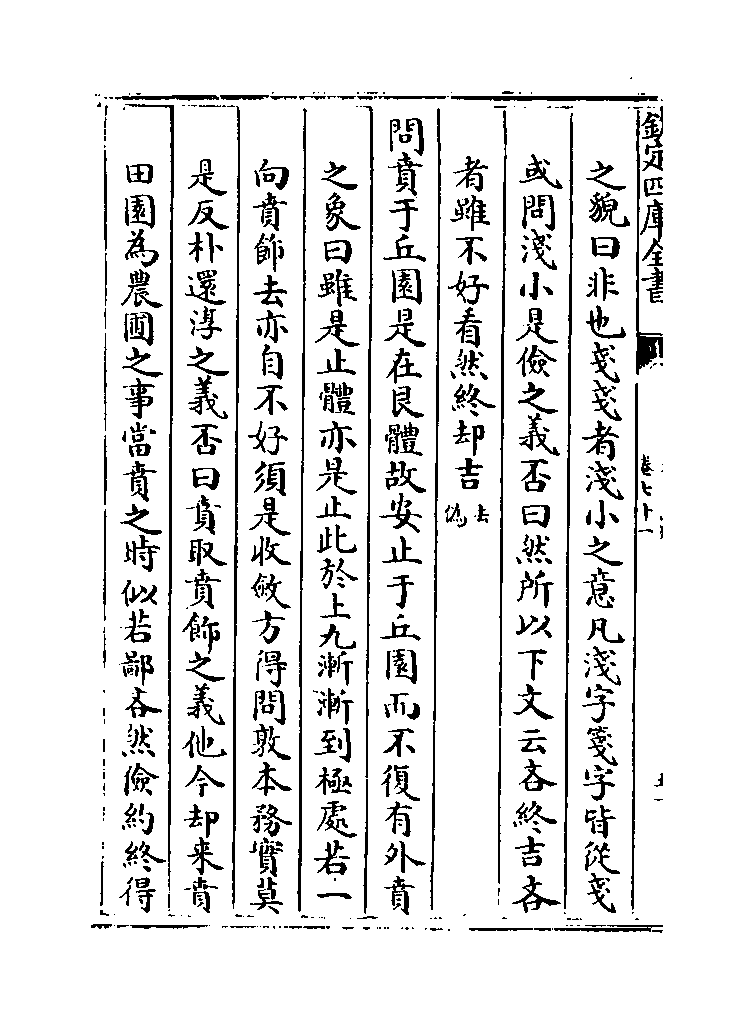 欽定四庫全書
卷七十一
之貌曰非也戔戔者淺小之意凡淺字箋字皆從戔
或問淺小是儉之義否曰然所以下文云吝終吉吝
者雖不好看然終却吉去偽
問賁于丘園是在艮體故安止于丘園而不復有外賁
之象曰雖是止體亦是止此於上九漸漸到極處若一
向賁飾去亦自不好須是收斂方得問敦本務實莫
是反朴還淳之義否曰賁取賁飾之義他今却来賁
田園為農圃之事當賁之時似若鄙吝然儉約終得